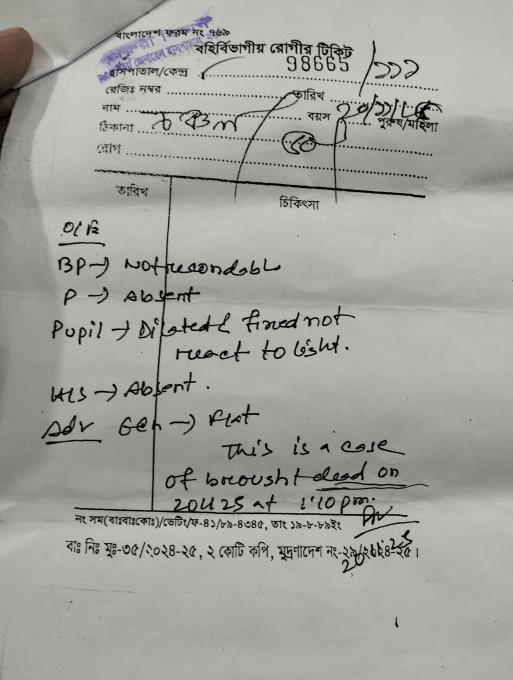 বাংলাদেশ ফরম নং ৭৬৯
বহির্বিভাগীয় রোগীর টিকিট
98665
হাসপাতাল/কেন্দ্র
রেজিঃ নম্বর তারিখ
নাম বয়স পুরুষ/মহিলা
ঠিকানা
রোগ
তারিখ চিকিৎসা
O/E
BP → Not recordable
P → Absent
Pupil → Dilated & fixed not
react to light.
H/S → Absent.
Adv ECG → Flat
This is a case
of brought dead on
20.11.25 at 1:10 pm.
নং সম(বাঃবাঃকোঃ)/ভেটিং/ফ-৪১/৮৯-৪৩৪৫, তাং ১৯-৮-৮৯ইং
20.11.25
বাঃ নিঃ মুঃ-৩৫/২০২৪-২৫, ২ কোটি কপি, মুদ্রণাদেশ নং-২৯/২০২৪-২৫।